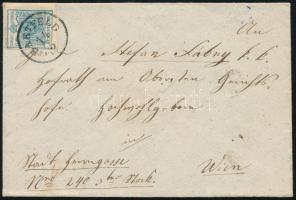 An
Stefan Fabny k. k.
Hofrath am Obersten Gerichts
hofe Hochwohlgeboren
in
Stadt, Herrngasse
Wien
Nro 240 3ter Stock.